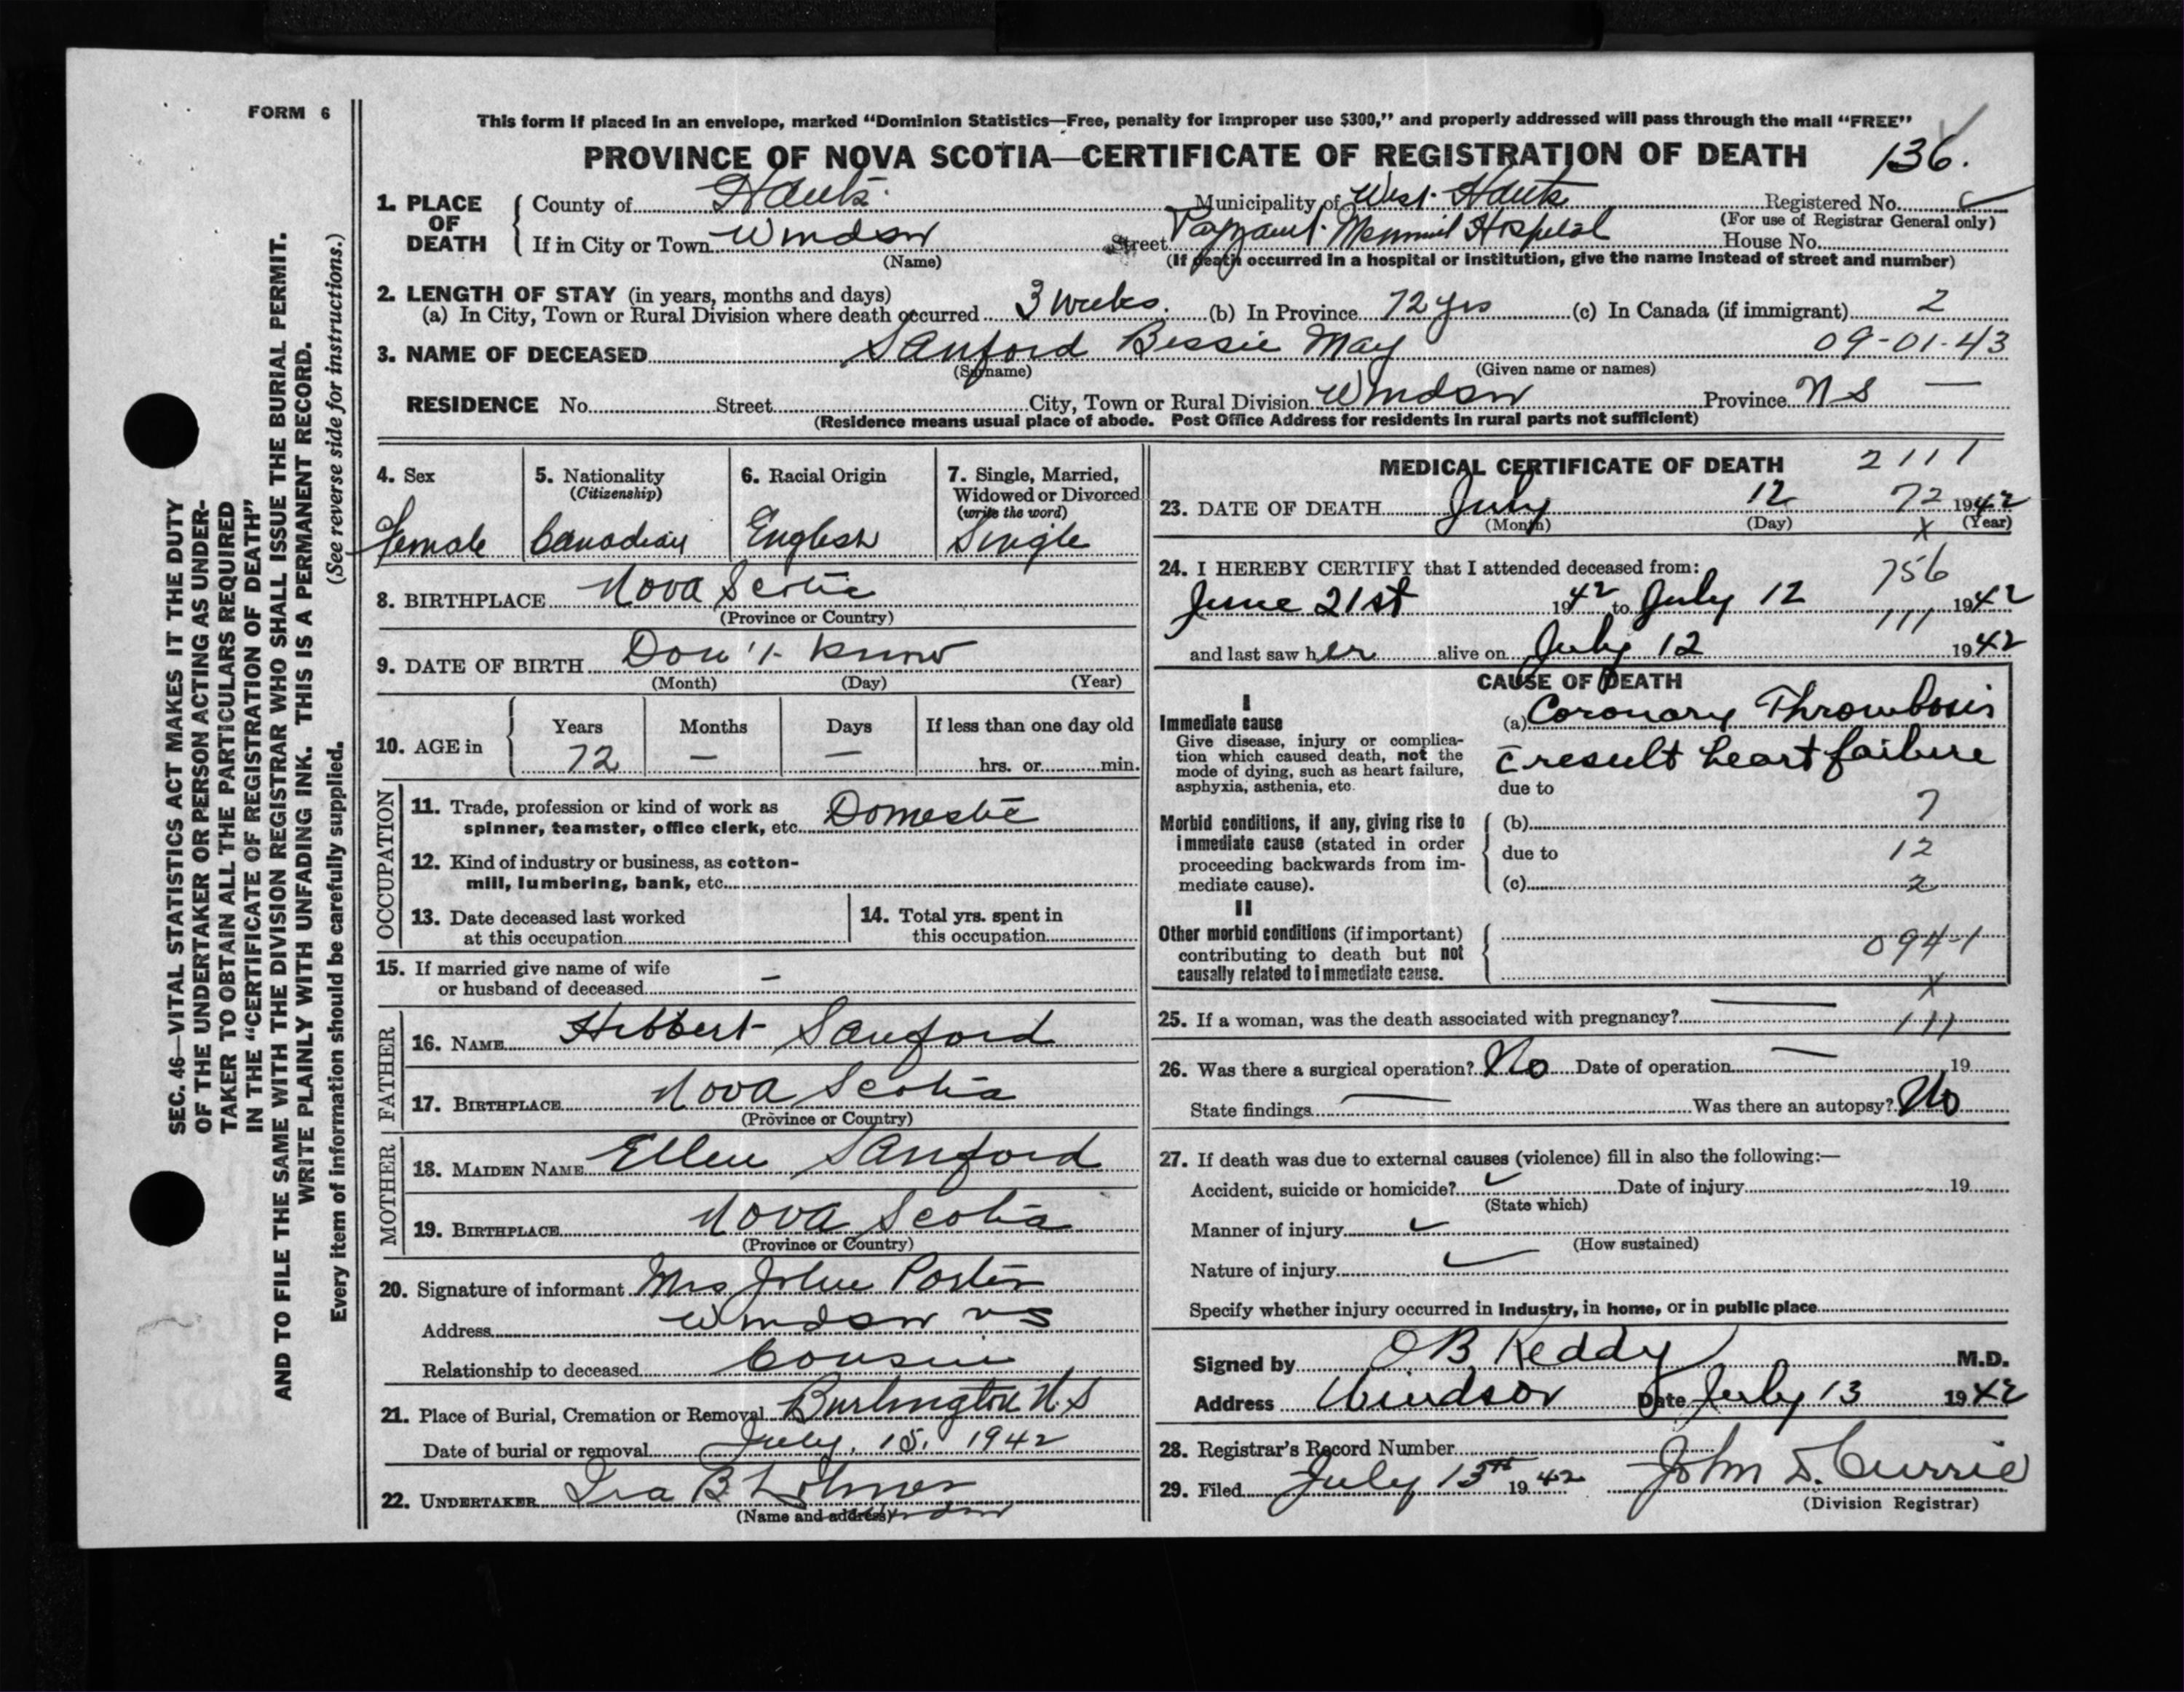 FORM 6
This form if placed in an envelope, marked “Dominion Statistics—Free, penalty for improper use $300,” and properly addressed will pass through the mail “FREE”
PROVINCE OF NOVA SCOTIA—CERTIFICATE OF REGISTRATION OF DEATH 136.
1. PLACE OF DEATH
County of Hants Municipality of West Hants Registered No.
(For use of Registrar General only)
If in City or Town Windsor Street Payzant Memorial Hospital House No.
(Name) (If death occurred in a hospital or institution, give the name instead of street and number)
2. LENGTH OF STAY (in years, months and days)
(a) In City, Town or Rural Division where death occurred 3 weeks. (b) In Province 72 yrs (c) In Canada (if immigrant) 2
3. NAME OF DECEASED Sanford Bessie May 09-01-43
(Surname) (Given name or names)
RESIDENCE No. Street City, Town or Rural Division Windsor Province N S —
(Residence means usual place of abode. Post Office Address for residents in rural parts not sufficient)
4. Sex
Female
5. Nationality
(Citizenship)
Canadian
6. Racial Origin
English
7. Single, Married,
Widowed or Divorced
(write the word)
Single
8. BIRTHPLACE Nova Scotia
(Province or Country)
9. DATE OF BIRTH Don't know
(Month) (Day) (Year)
10. AGE in
Years Months Days If less than one day old
72 — — hrs. or min.
OCCUPATION
11. Trade, profession or kind of work as
spinner, teamster, office clerk, etc. Domestic
12. Kind of industry or business, as cotton-
mill, lumbering, bank, etc.
13. Date deceased last worked
at this occupation
14. Total yrs. spent in
this occupation
15. If married give name of wife
or husband of deceased —
FATHER
16. NAME Hibbert Sanford
17. BIRTHPLACE Nova Scotia
(Province or Country)
MOTHER
18. MAIDEN NAME Ellen Sanford
19. BIRTHPLACE Nova Scotia
(Province or Country)
20. Signature of informant Mrs John Porter
Address Windsor NS
Relationship to deceased Cousin
21. Place of Burial, Cremation or Removal Burlington N.S
Date of burial or removal July. 15. 1942
22. UNDERTAKER Ira B
(Name and address) Windsor
MEDICAL CERTIFICATE OF DEATH 2111
23. DATE OF DEATH July 12 72 1942
(Month) (Day) x (Year)
24. I HEREBY CERTIFY that I attended deceased from: 756
June 21st 1942 to July 12 1942
111
and last saw her alive on July 12 1942
CAUSE OF DEATH
I
Immediate cause
Give disease, injury or complica-
tion which caused death, not the
mode of dying, such as heart failure,
asphyxia, asthenia, etc.
(a) Coronary Thrombosis
c̄ result heart failure
due to
Morbid conditions, if any, giving rise to
immediate cause (stated in order
proceeding backwards from im-
mediate cause).
(b) 7
due to 12
(c) 2
II
Other morbid conditions (if important)
contributing to death but not
causally related to immediate cause.
094-1
x
25. If a woman, was the death associated with pregnancy? — 111
26. Was there a surgical operation? No Date of operation — 19
State findings — Was there an autopsy? No
27. If death was due to external causes (violence) fill in also the following:—
Accident, suicide or homicide? Date of injury 19
(State which)
Manner of injury
(How sustained)
Nature of injury
Specify whether injury occurred in Industry, in home, or in public place
Signed by O B Keddy M.D.
Address Windsor Date July 13 1942
28. Registrar's Record Number
29. Filed July 13TH 1942 John D. Currie
(Division Registrar)
SEC. 46—VITAL STATISTICS ACT MAKES IT THE DUTY
OF THE UNDERTAKER OR PERSON ACTING AS UNDER-
TAKER TO OBTAIN ALL THE PARTICULARS REQUIRED
IN THE “CERTIFICATE OF REGISTRATION OF DEATH”
AND TO FILE THE SAME WITH THE DIVISION REGISTRAR WHO SHALL ISSUE THE BURIAL PERMIT.
WRITE PLAINLY WITH UNFADING INK. THIS IS A PERMANENT RECORD.
Every item of information should be carefully supplied. (See reverse side for instructions.)